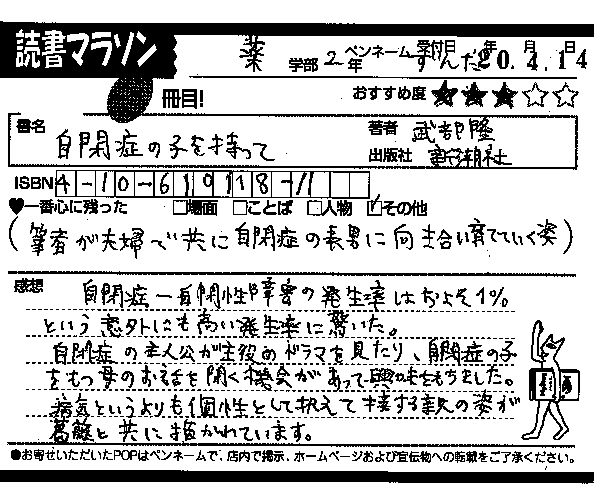 読書マラソン
薬 学部 2年 ペンネーム すんだ 受付日 年 月 日 20.4.14
冊目!
おすすめ度 ★★★☆☆
書名 自閉症の子を持って
著者 武部隆
出版社 新潮社
ISBN 4-10-610118-11
♥一番心に残った □場面 □ことば □人物 ☑その他
(筆者が夫婦で共に自閉症の長男に向き合い育てていく姿)
感想 自閉症-自閉性障害の発生率はおよそ1%
という意外にも高い発生率に驚いた。
自閉症の主人公が主役のドラマを見たり、自閉症の子
をもつ母のお話を聞く機会があって興味をもちました。
病気というよりも個性として捉えて接する親の姿が
葛藤と共に描かれています。
●お寄せいただいたPOPはペンネームで、店内で掲示、ホームページおよび宣伝物への転載をご了承ください。